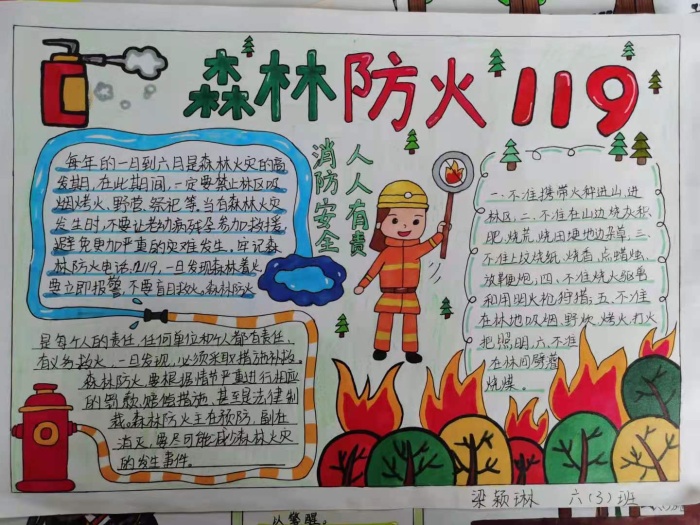 森林防火119
消防安全
人人有责
每年的一日到六月是森林火灾的高
发期,在此期间,一定要禁止林区吸
烟烤火、野营、祭祀等,当有森林火灾
发生时,不要让老幼病残孕参加救援,
避免更加严重的灾难发生。牢记森
林防火电话,119,一旦发现森林着火,
要立即报警,不要盲目救火。森林防火
是每个人的责任,任何单位和个人都有责任,
有义务救火,一旦发现,必须采取措施补救。
森林防火要根据情节严重进行相应
的罚款赔偿措施,甚至是法律制
裁。森林防火主在预防,副在
消灭,要尽可能减少森林火灾
的发生事件。
一、不准携带火种进山,进
林区;二、不准在山边烧灰积
肥,烧荒,烧田埂地边杂草;三、
不准上坟烧纸,烧香,点蜡烛,
放鞭炮;四、不准烧火驱兽
和用明火枪狩猎;五、不准
在林地吸烟,野炊,烤火,打火
把照明;六、不准
在林间劈
烧煤。
梁颖琳 六(3)班
以警醒。